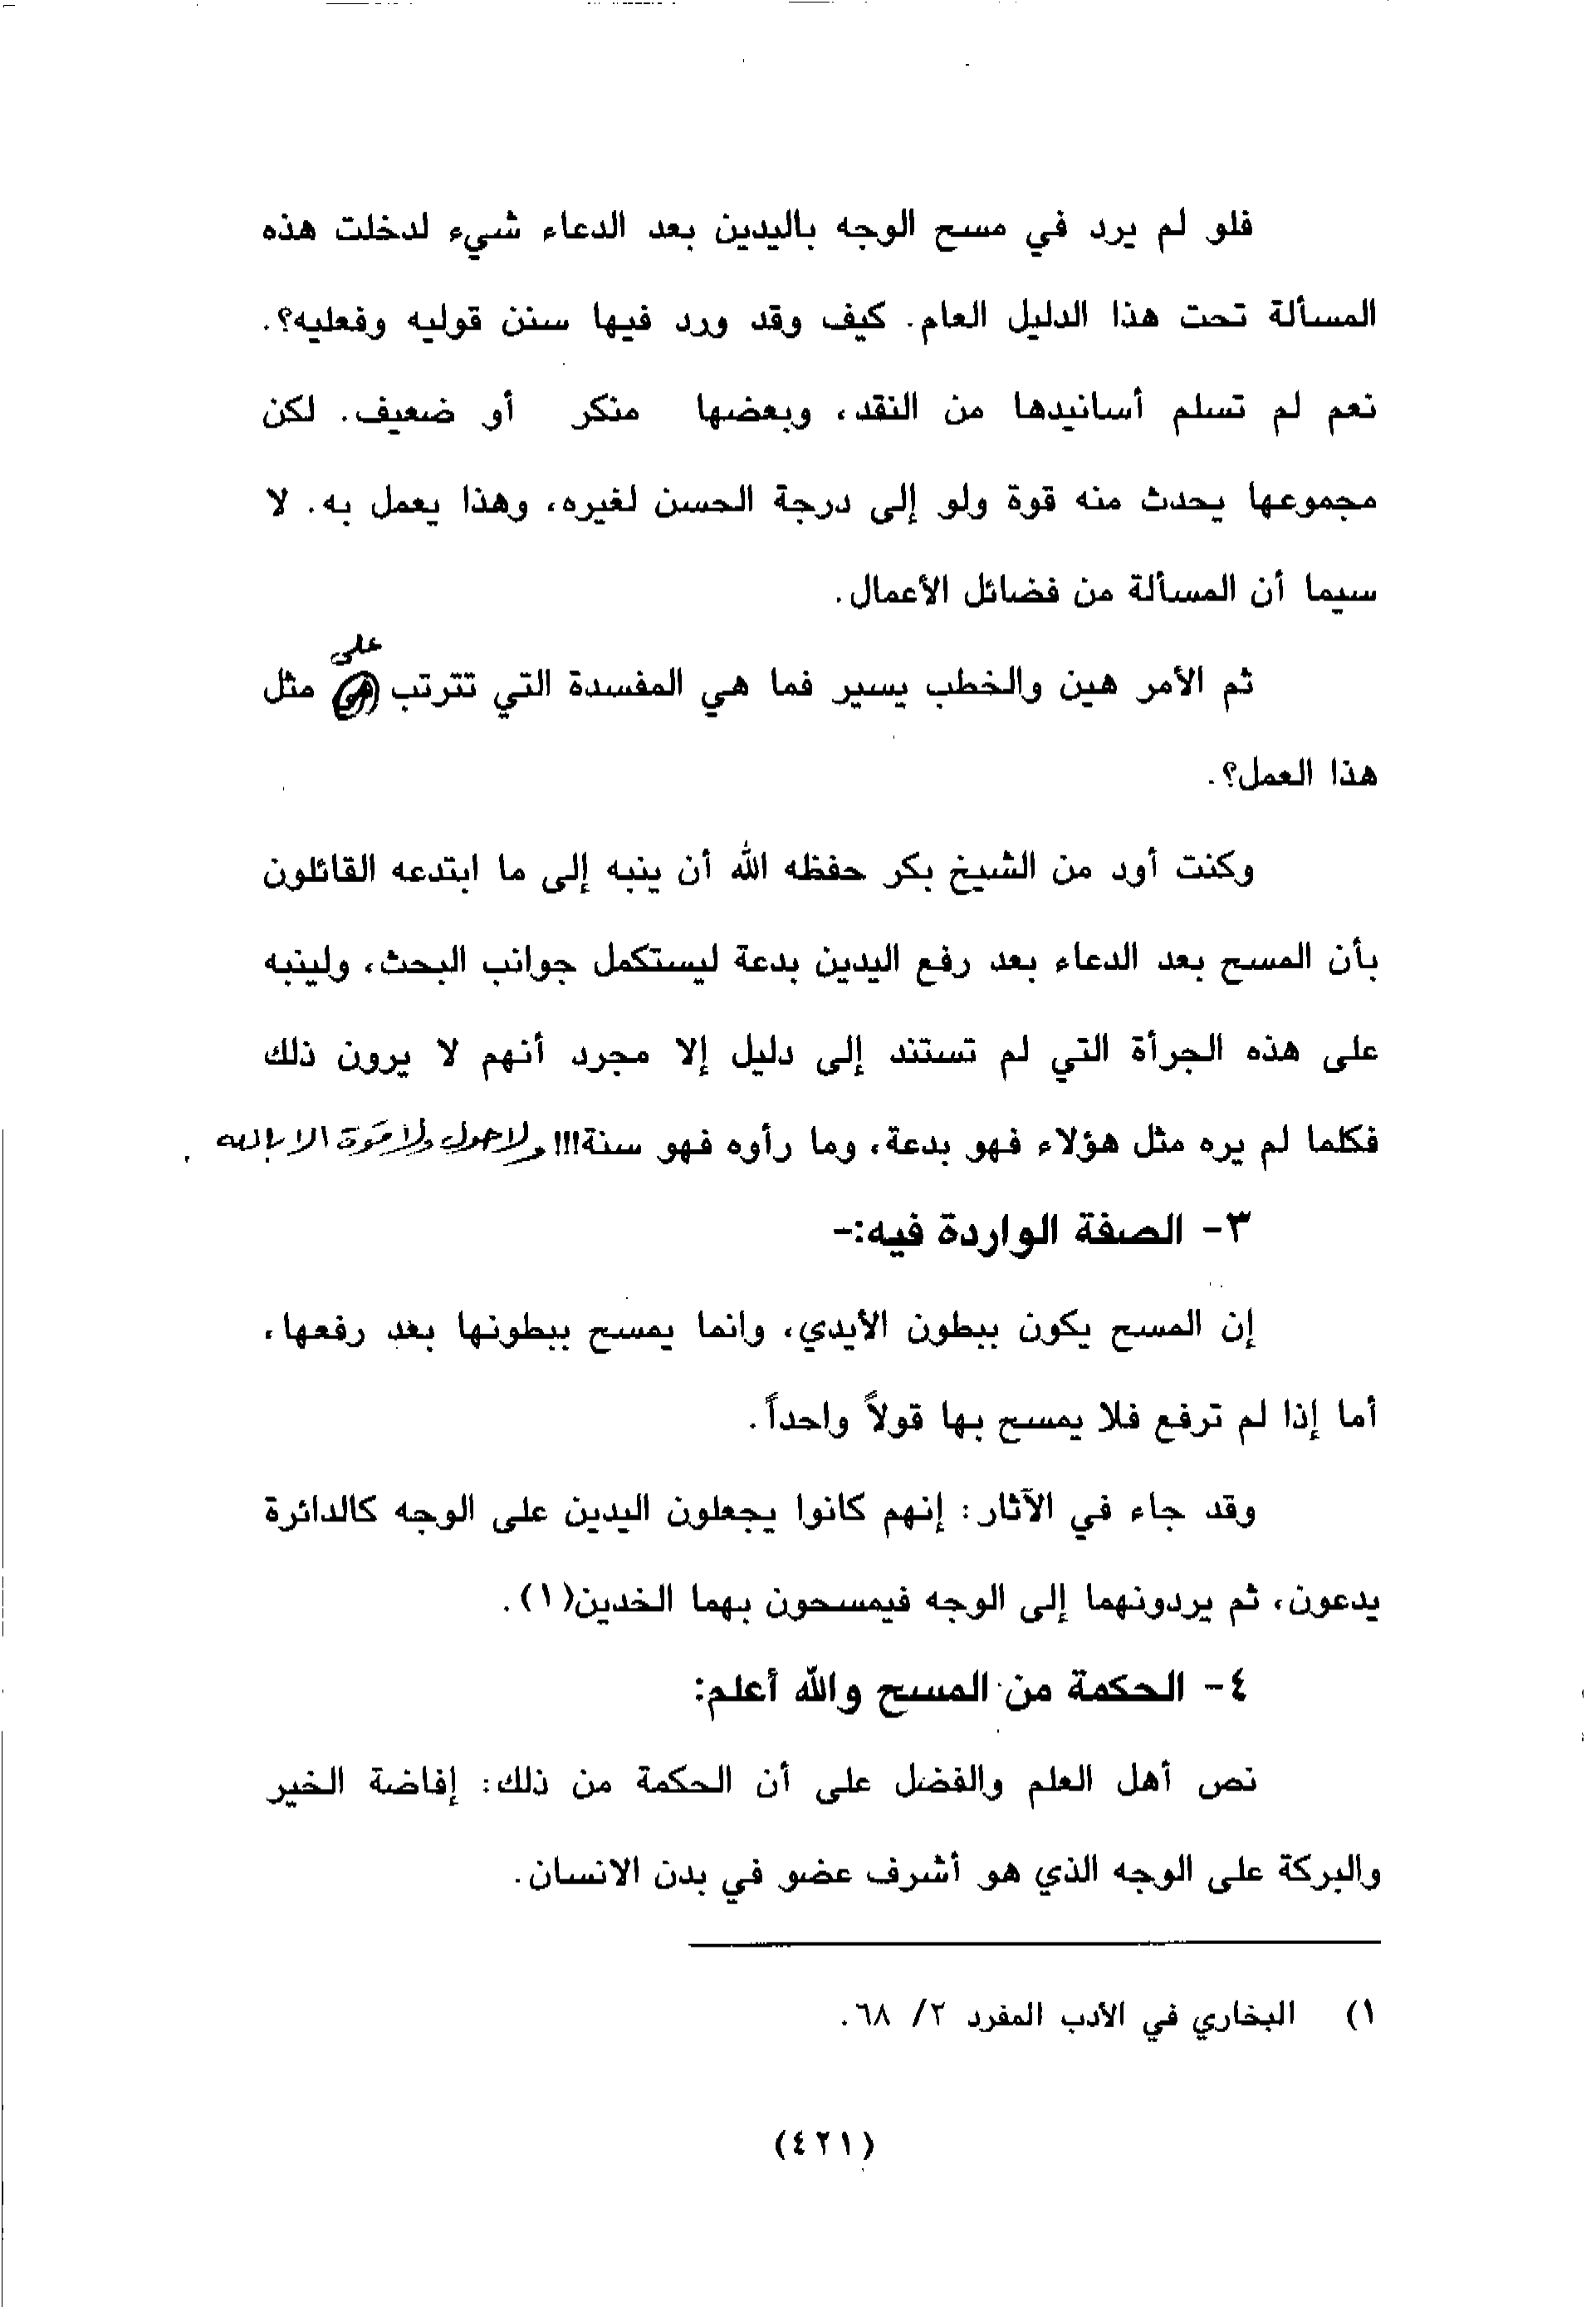 فلو لم يرد في مسح الوجه باليدين بعد الدعاء شيء لدخلت هذه
المسألة تحت هذا الدليل العام. كيف وقد ورد فيها سنن قوليه وفعليه؟.
نعم لم تسلم أسانيدها من النقد، وبعضها منكر أو ضعيف. لكن
مجموعها يحدث منه قوة ولو إلى درجة الحسن لغيره، وهذا يعمل به. لا
سيما أن المسألة من فضائل الأعمال.
ثم الأمر هين والخطب يسير فما هي المفسدة التي تترتب على مثل
هذا العمل؟.
وكنت أود من الشيخ بكر حفظه الله أن ينبه إلى ما ابتدعه القائلون
بأن المسح بعد الدعاء بعد رفع اليدين بدعة ليستكمل جوانب البحث، ولينبه
على هذه الجرأة التي لم تستند إلى دليل إلا مجرد أنهم لا يرون ذلك
فكلما لم يره مثل هؤلاء فهو بدعة، وما رأوه فهو سنة!!! ولا حول ولا قوة الا بالله .
٣- الصفة الواردة فيه:-
إن المسح يكون ببطون الأيدي، وانما يمسح ببطونها بعد رفعها،
أما إذا لم ترفع فلا يمسح بها قولاً واحداً.
وقد جاء في الآثار: إنهم كانوا يجعلون اليدين على الوجه كالدائرة
يدعون، ثم يردونهما إلى الوجه فيمسحون بهما الخدين(١).
٤- الحكمة من المسح والله أعلم:
نص أهل العلم والفضل على أن الحكمة من ذلك: إفاضة الخير
والبركة على الوجه الذي هو أشرف عضو في بدن الانسان.
١) البخاري في الأدب المفرد ٢/ ٦٨.
(٤٢١)